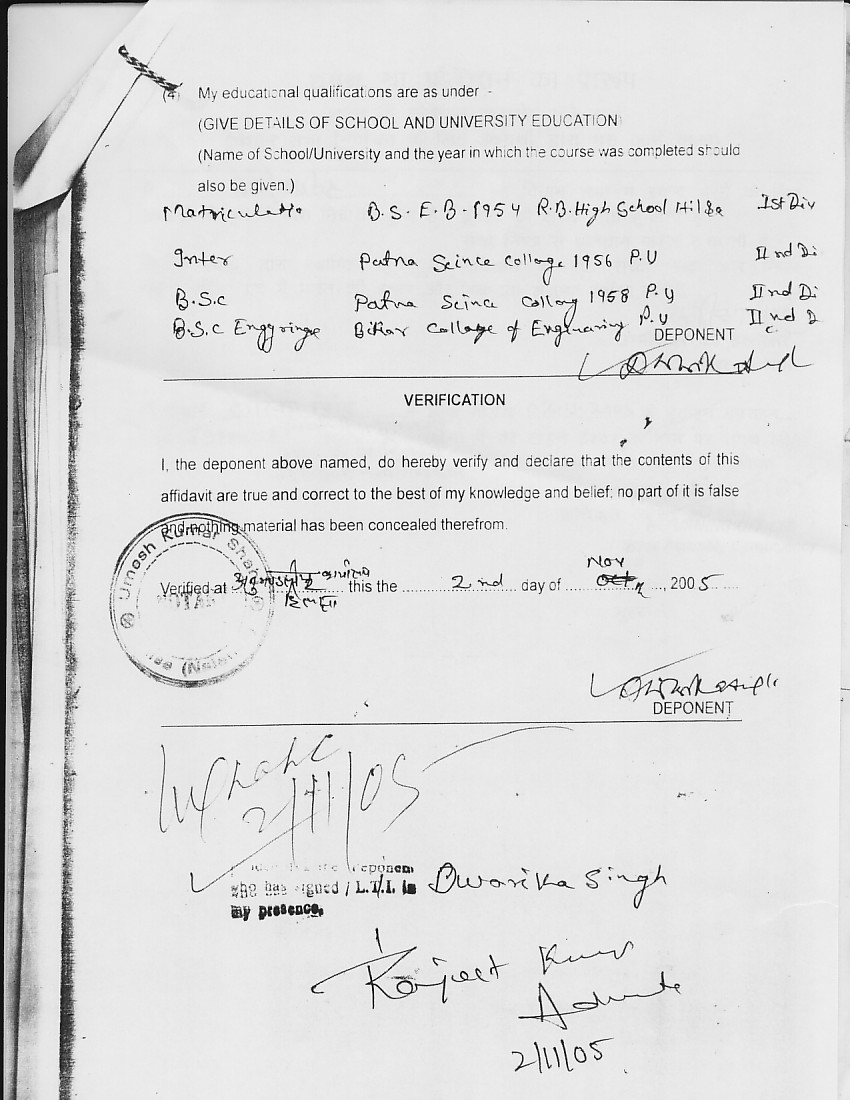 (4) My educational qualifications are as under -
(GIVE DETAILS OF SCHOOL AND UNIVERSITY EDUCATION)
(Name of School/University and the year in which the course was completed should
also be given.)
Matriculatio B.S.E.B-1954 R.B.High School Hilsa Ist Div
Inter Patna Seince College 1956 P.U IInd Di
B.S.c Patna Seince Colleg 1958 P.U IInd Di
B.S.c Bihar College of P.U IInd D
DEPONENT
VERIFICATION
I, the deponent above named, do hereby verify and declare that the contents of this
affidavit are true and correct to the best of my knowledge and belief; no part of it is false
and nothing material has been concealed therefrom.
Umesh Kumar
Verified at this the 2nd day of Nov, 2005
हिलसा
DEPONENT
2/11/05
deponent
who has signed / L.T.I. in Dwarika Singh
my presence.
Ranjeet Kumar
Advocate
2/11/05